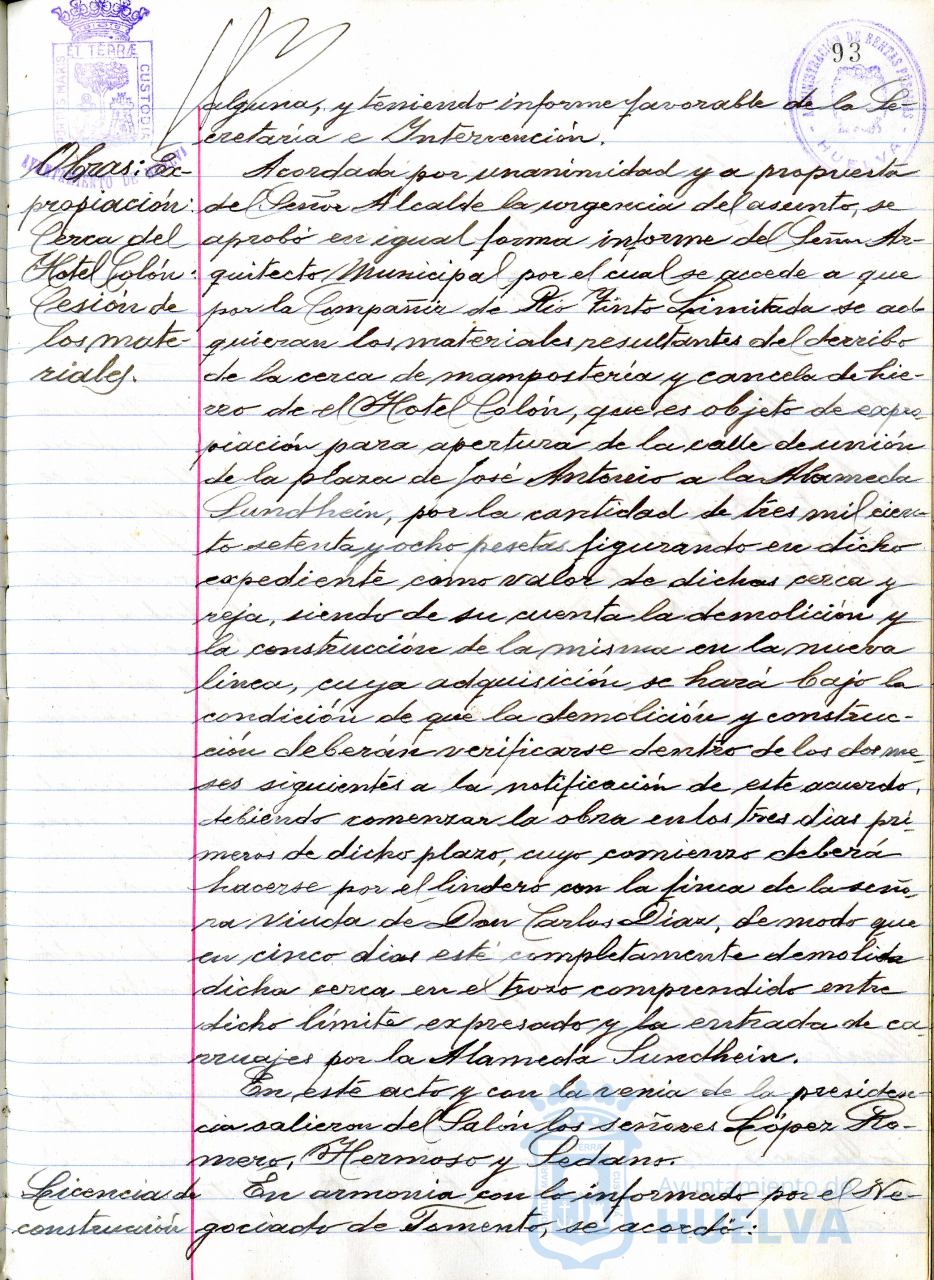 93
ET TERRÆ
CUSTODIA
AYUNTAMIENTO DE HUELVA
ADMINISTRACIÓN DE RENTAS PÚBLICAS
HUELVA
alguna, y teniendo informe favorable de la Se-
cretaría e Intervención.
Obras: Ex-
propiación:
Cerca del
Hotel Colón:
Cesión de
los mate-
riales.
Acordada por unanimidad y a propuesta
del Señor Alcalde la urgencia del asunto, se
aprobó en igual forma informe del Señor Ar-
quitecto Municipal por el cual se accede a que
por la Compañir de Rio Tinto Limitada se ad-
quieran los materiales resultantes del derribo
de la cerca de mampostería y cancela de hie-
rro de el Hotel Colón, que es objeto de expro-
piación para apertura de la calle de unión
de la plaza de José Antonio a la Alameda
Sundhein, por la cantidad de tres mil cien-
to setenta y ocho pesetas figurando en dicho
expediente como valor de dichas cerca y
reja, siendo de su cuenta la demolición y
la construcción de la misma en la nueva
linea, cuya adquisición se hará bajo la
condición de que la demolición y construc-
ción deberán verificarse dentro de los dos me-
ses siguientes a la notificación de este acuerdo,
debiendo comenzar la obra en los tres dias pri-
meros de dicho plazo, cuyo comienzo deberá
hacerse por el lindero con la finca de la seño-
ra viuda de Don Carlos Diaz, de modo que
en cinco dias esté completamente demolida
dicha cerca en el trozo comprendido entre
dicho límite expresado y la entrada de ca-
rruajes por la Alameda Sundhein.
En este acto y con la venia de la presiden-
cia salieron del Salón los señores López Ro-
mero, Hermoso y Sedano.
Licencias de
construcción
En armonia con lo informado por el Ne-
gociado de Fomento, se acordó:
Ayuntamiento de
HUELVA